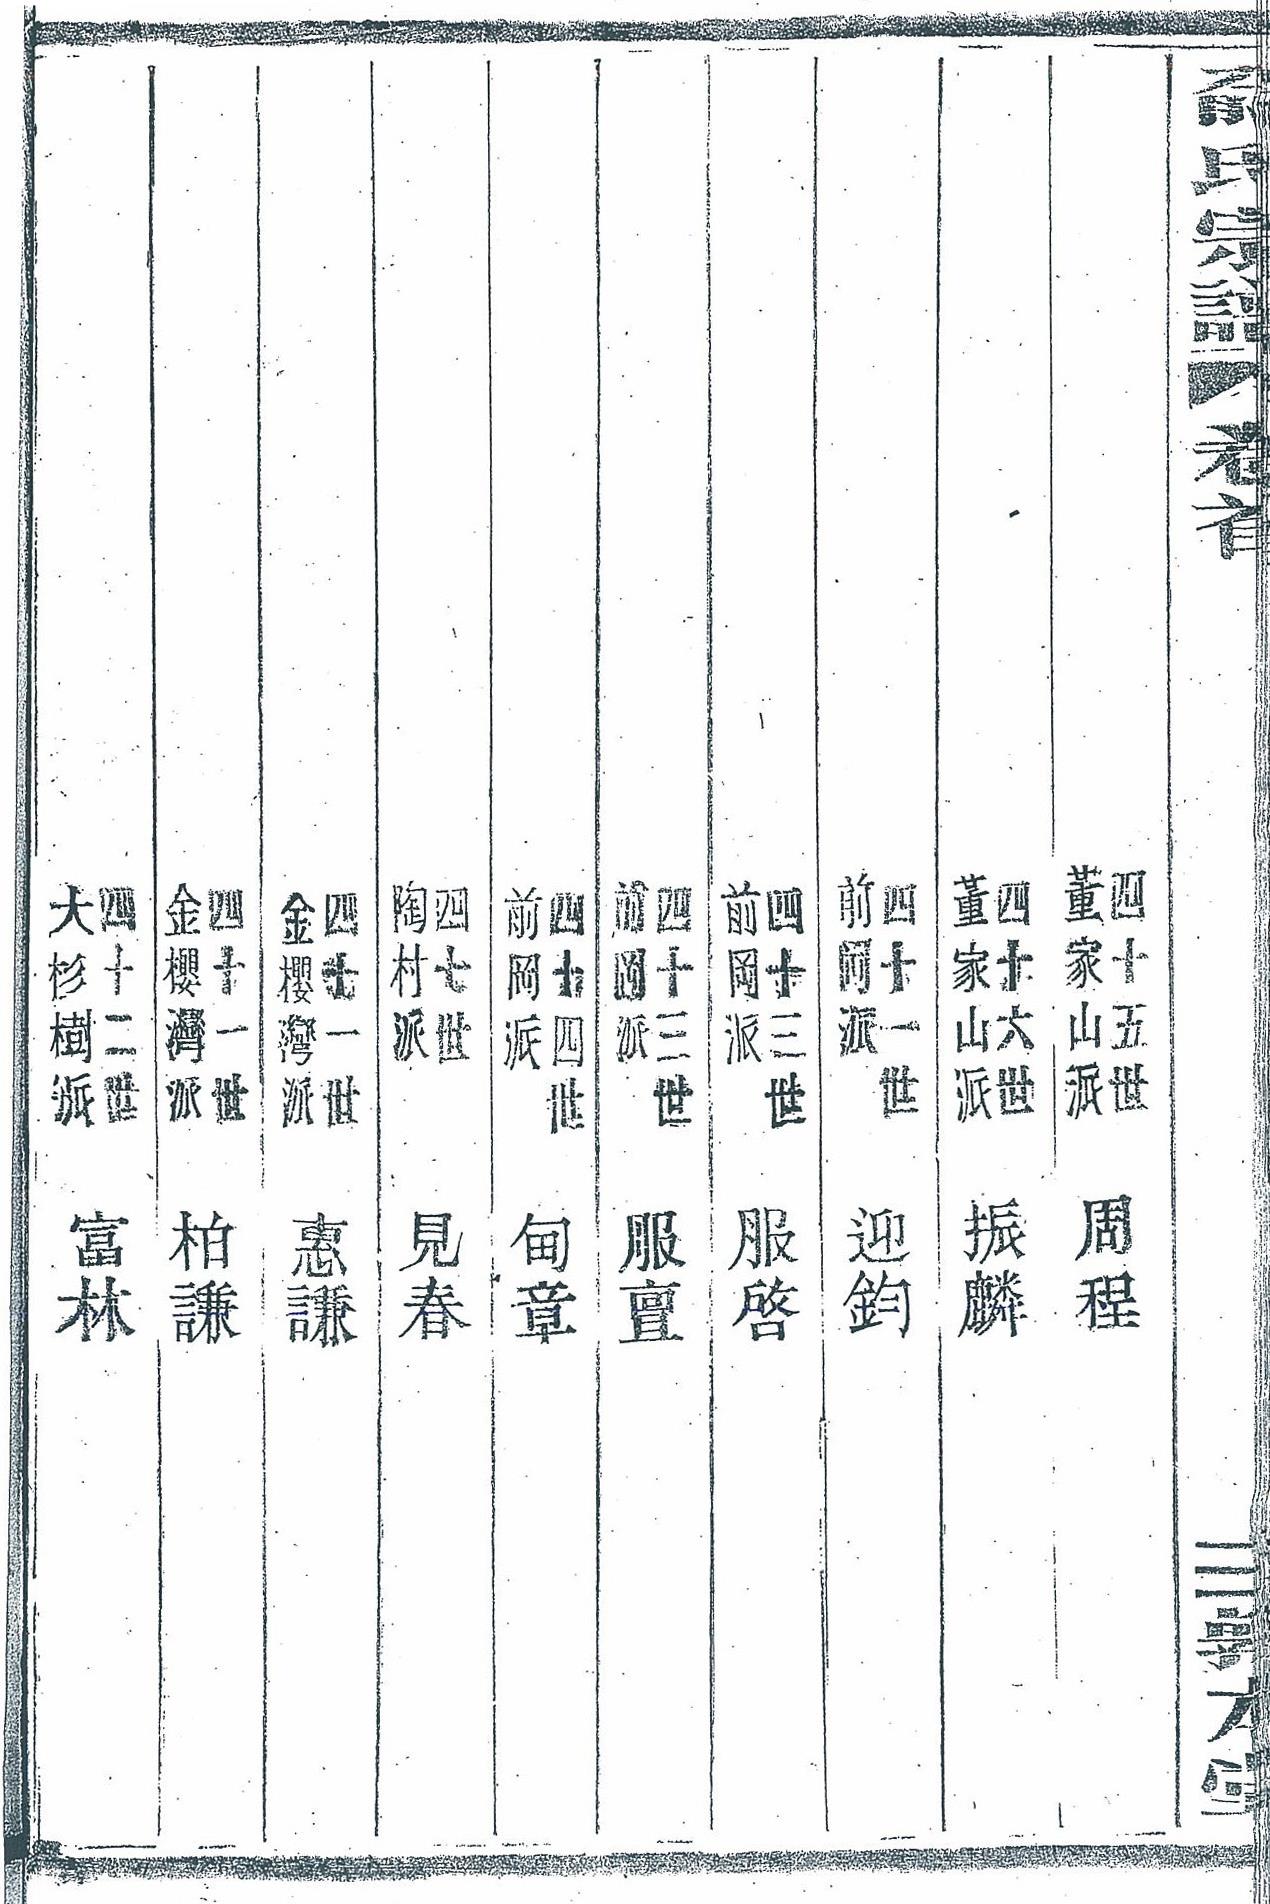 氏宗譜 卷首
四十五世
董家山派
周程
四十六世
董家山派
振麟
四十一世
前岡派
迎鈞
四十三世
前岡派
服啓
四十三世
前岡派
服亶
四十四世
前岡派
甸章
四七世
陶村派
見春
四十一世
金櫻灣派
惠謙
四十一世
金櫻灣派
柏謙
四十二世
大杉樹派
富林
三